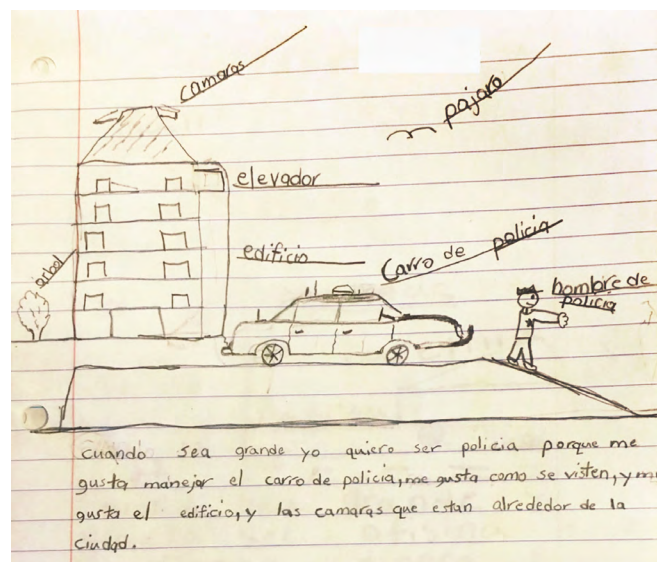 camaras
pajaro
elevador
edificio
Carro de policia
arbol
hombre de
policia
Cuando sea grande yo quiero ser policia porque me
gusta manejar el carro de policia, me gusta como se visten, y
gusta el edificio, y las camaras que estan alrededor de la
ciudad.